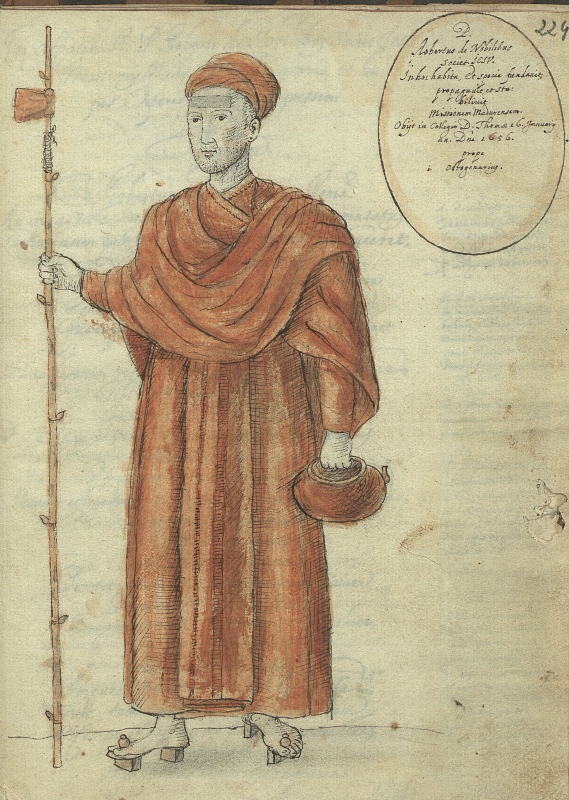 224
P.
Robertus de Nobilibus
Societ. IESV.
In hoc habitu, et specie fundavit,
propagavit, et sta-
bilivit
Missionem Madurensem.
Obijt in Colegio D. Thomæ 16. Januarij
An. Dni 1656.
prope
octogenarius.